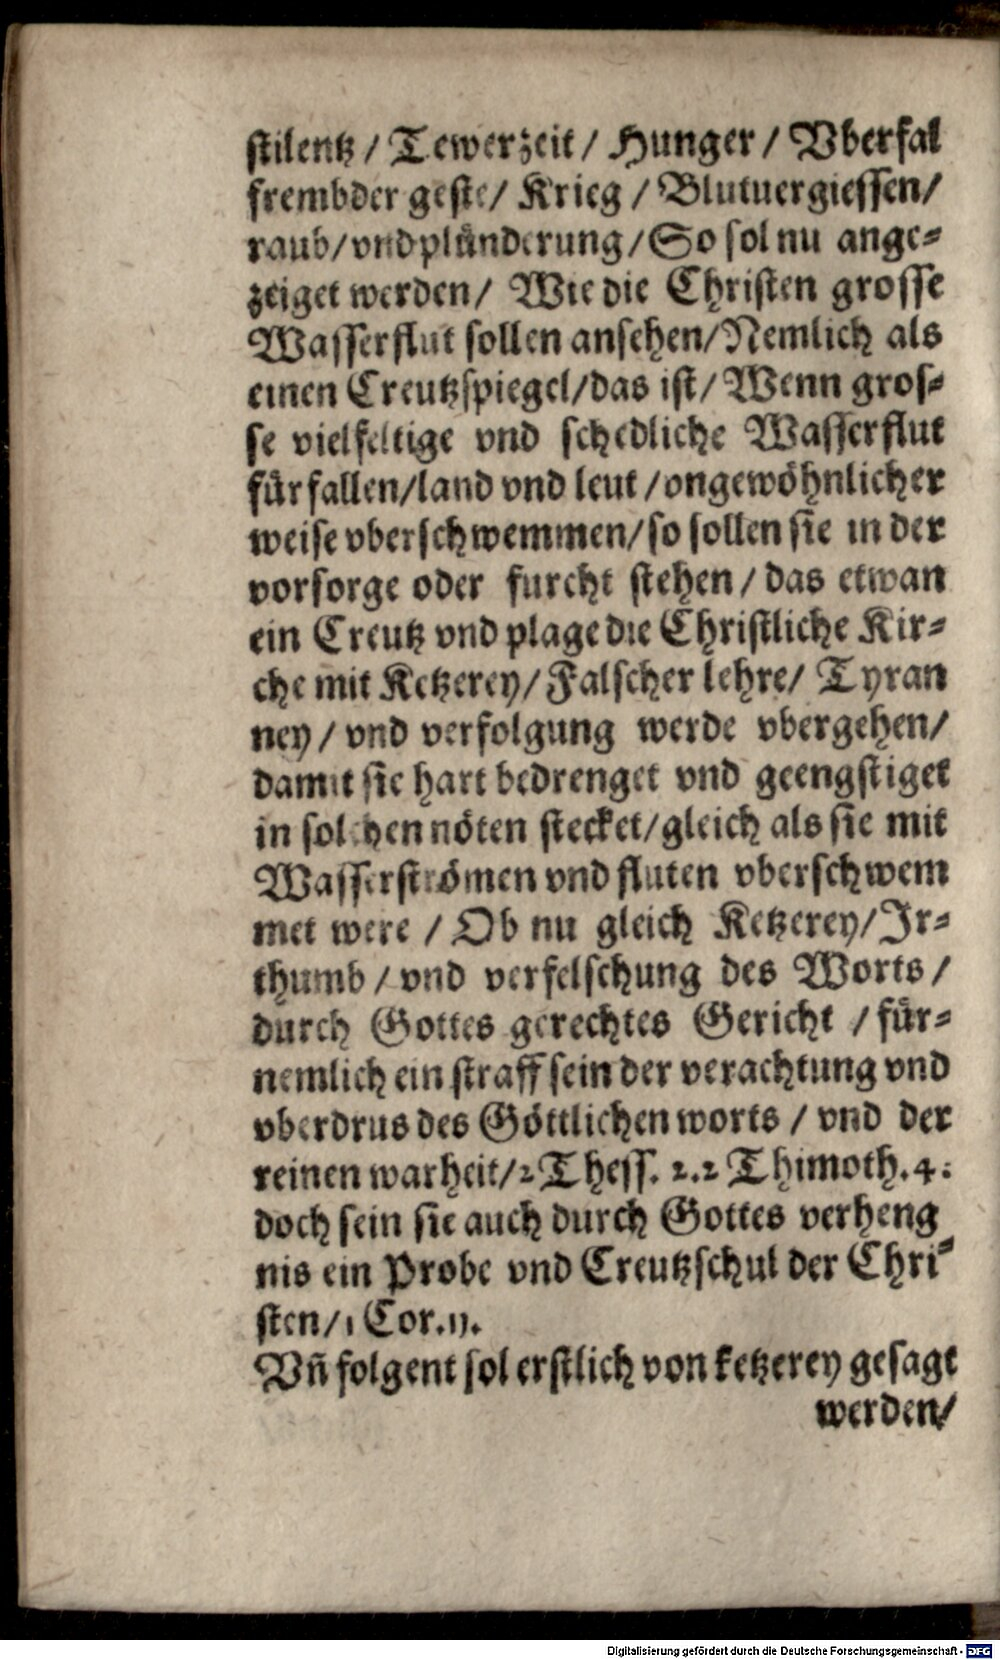 stilentz / Tewerzeit / Hunger / Vberfal
frembder geste/ Krieg / Blutuergiessen/
raub/vnd plünderung/So sol nu ange-
zeiget werden/ Wie die Christen grosse
Wasserflut sollen ansehen/Nemlich als
einen Creutzspiegel/das ist/Wenn gros-
se vielfeltige vnd schedliche Wasserflut
fürfallen/land vnd leut /ongewöhnlicher
weise vberschwemmen/so sollen sie in der
vorsorge oder furcht stehen/das etwan
ein Creutz vnd plage die Christliche Kir-
che mit Ketzerey/Falscher lehre/ Tyran
ney / vnd verfolgung werde vbergehen/
damit sie hart bedrenget vnd geengstiget
in solchen nöten stecket/gleich als sie mit
Wasserströmen vnd fluten vberschwem
met were / Ob nu gleich Ketzerey/Ir-
thumb / vnd verfelschung des Worts /
durch Gottes gerechtes Gericht / für-
nemlich ein straff sein der verachtung vnd
vberdrus des Göttlichen worts / vnd der
reinen warheit/2 Thess. 2.2 Thimoth.4.
doch sein sie auch durch Gottes verheng
nis ein Probe vnd Creutzschul der Chri-
sten/1 Cor.11.
Vn̄ folgent sol erstlich von ketzerey gesagt
werden/
Digitalisierung gefördert durch die Deutsche Forschungsgemeinschaft - DFG